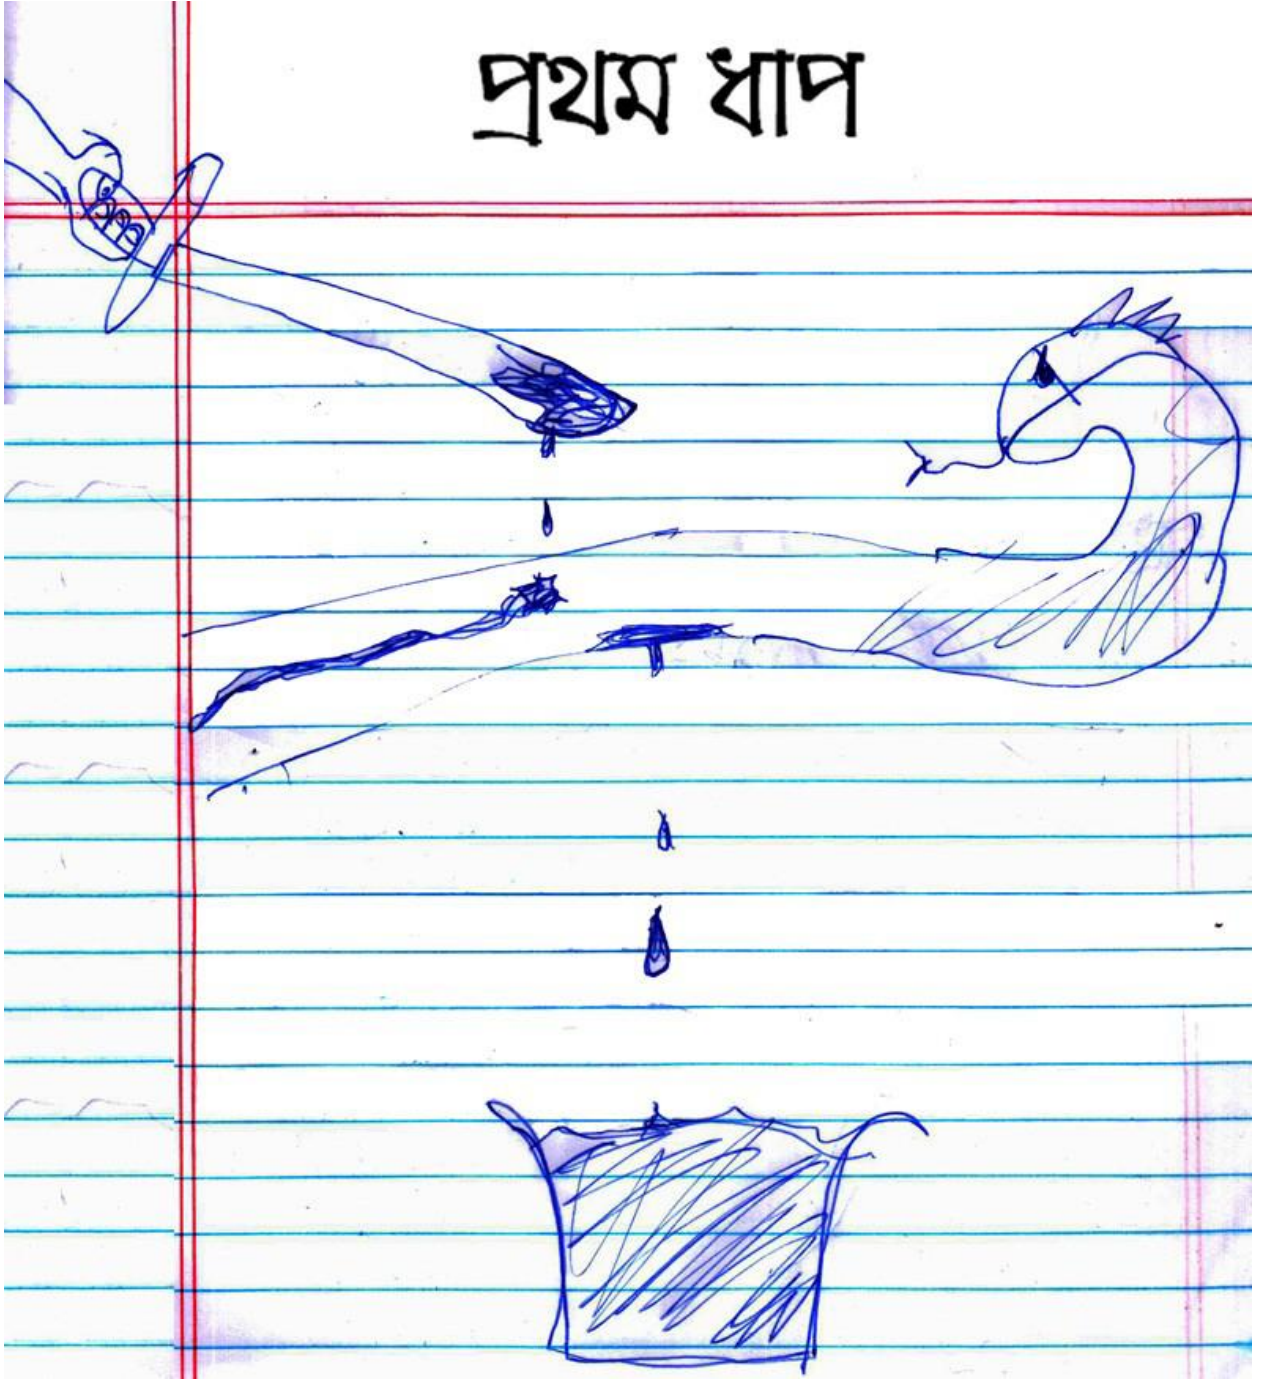 প্রথম ধাপ